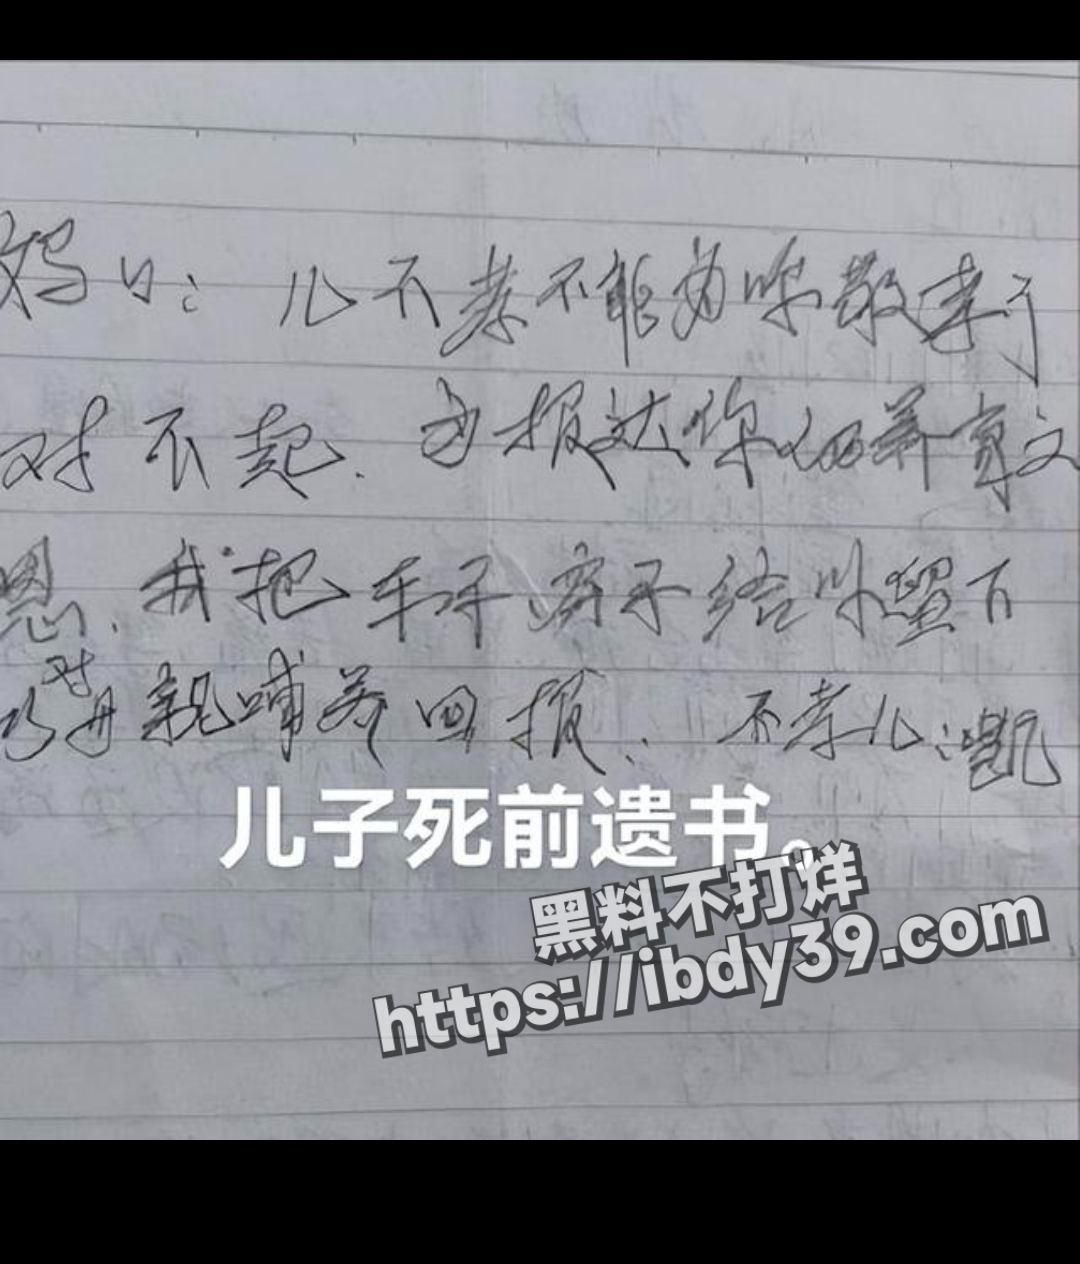 妈:儿不孝不能为你敬孝了
对不起.为报达你的养育之
恩.我把车子、房子给你留下
对母亲哺养回报. 不孝儿:凯
儿子死前遗书。
黑料不打烊
https://ibdy39.com